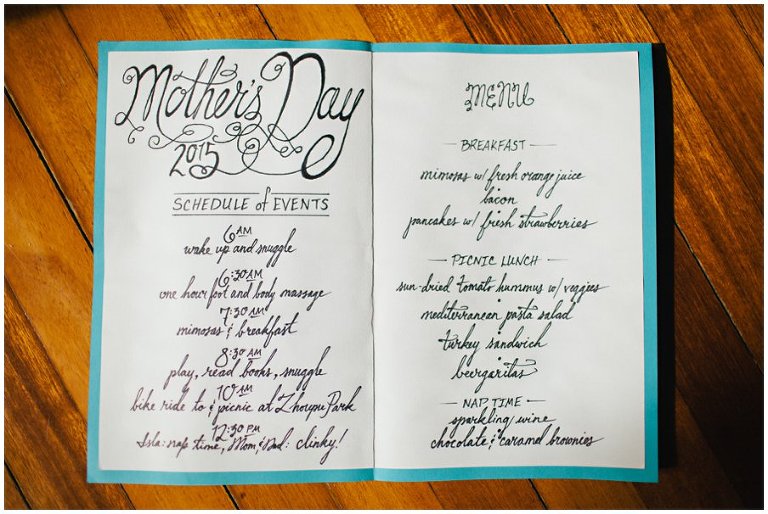 Mother's Day
2015
SCHEDULE of EVENTS
6 AM
wake up and snuggle
6:30 AM
one hour foot and body massage
7:30 AM
mimosas & breakfast
8:30 AM
play, read books, snuggle
10 AM
bike ride to & picnic at Park
12:30 PM
Isla: nap time, Mom & Dad: clinky!
MENU
BREAKFAST
mimosas w/ fresh orange juice
bacon
pancakes w/ fresh strawberries
PICNIC LUNCH
sun-dried tomato hummus w/ veggies
mediterranean pasta salad
turkey sandwich
beergaritas
NAP TIME
sparkling wine
chocolate & caramel brownies